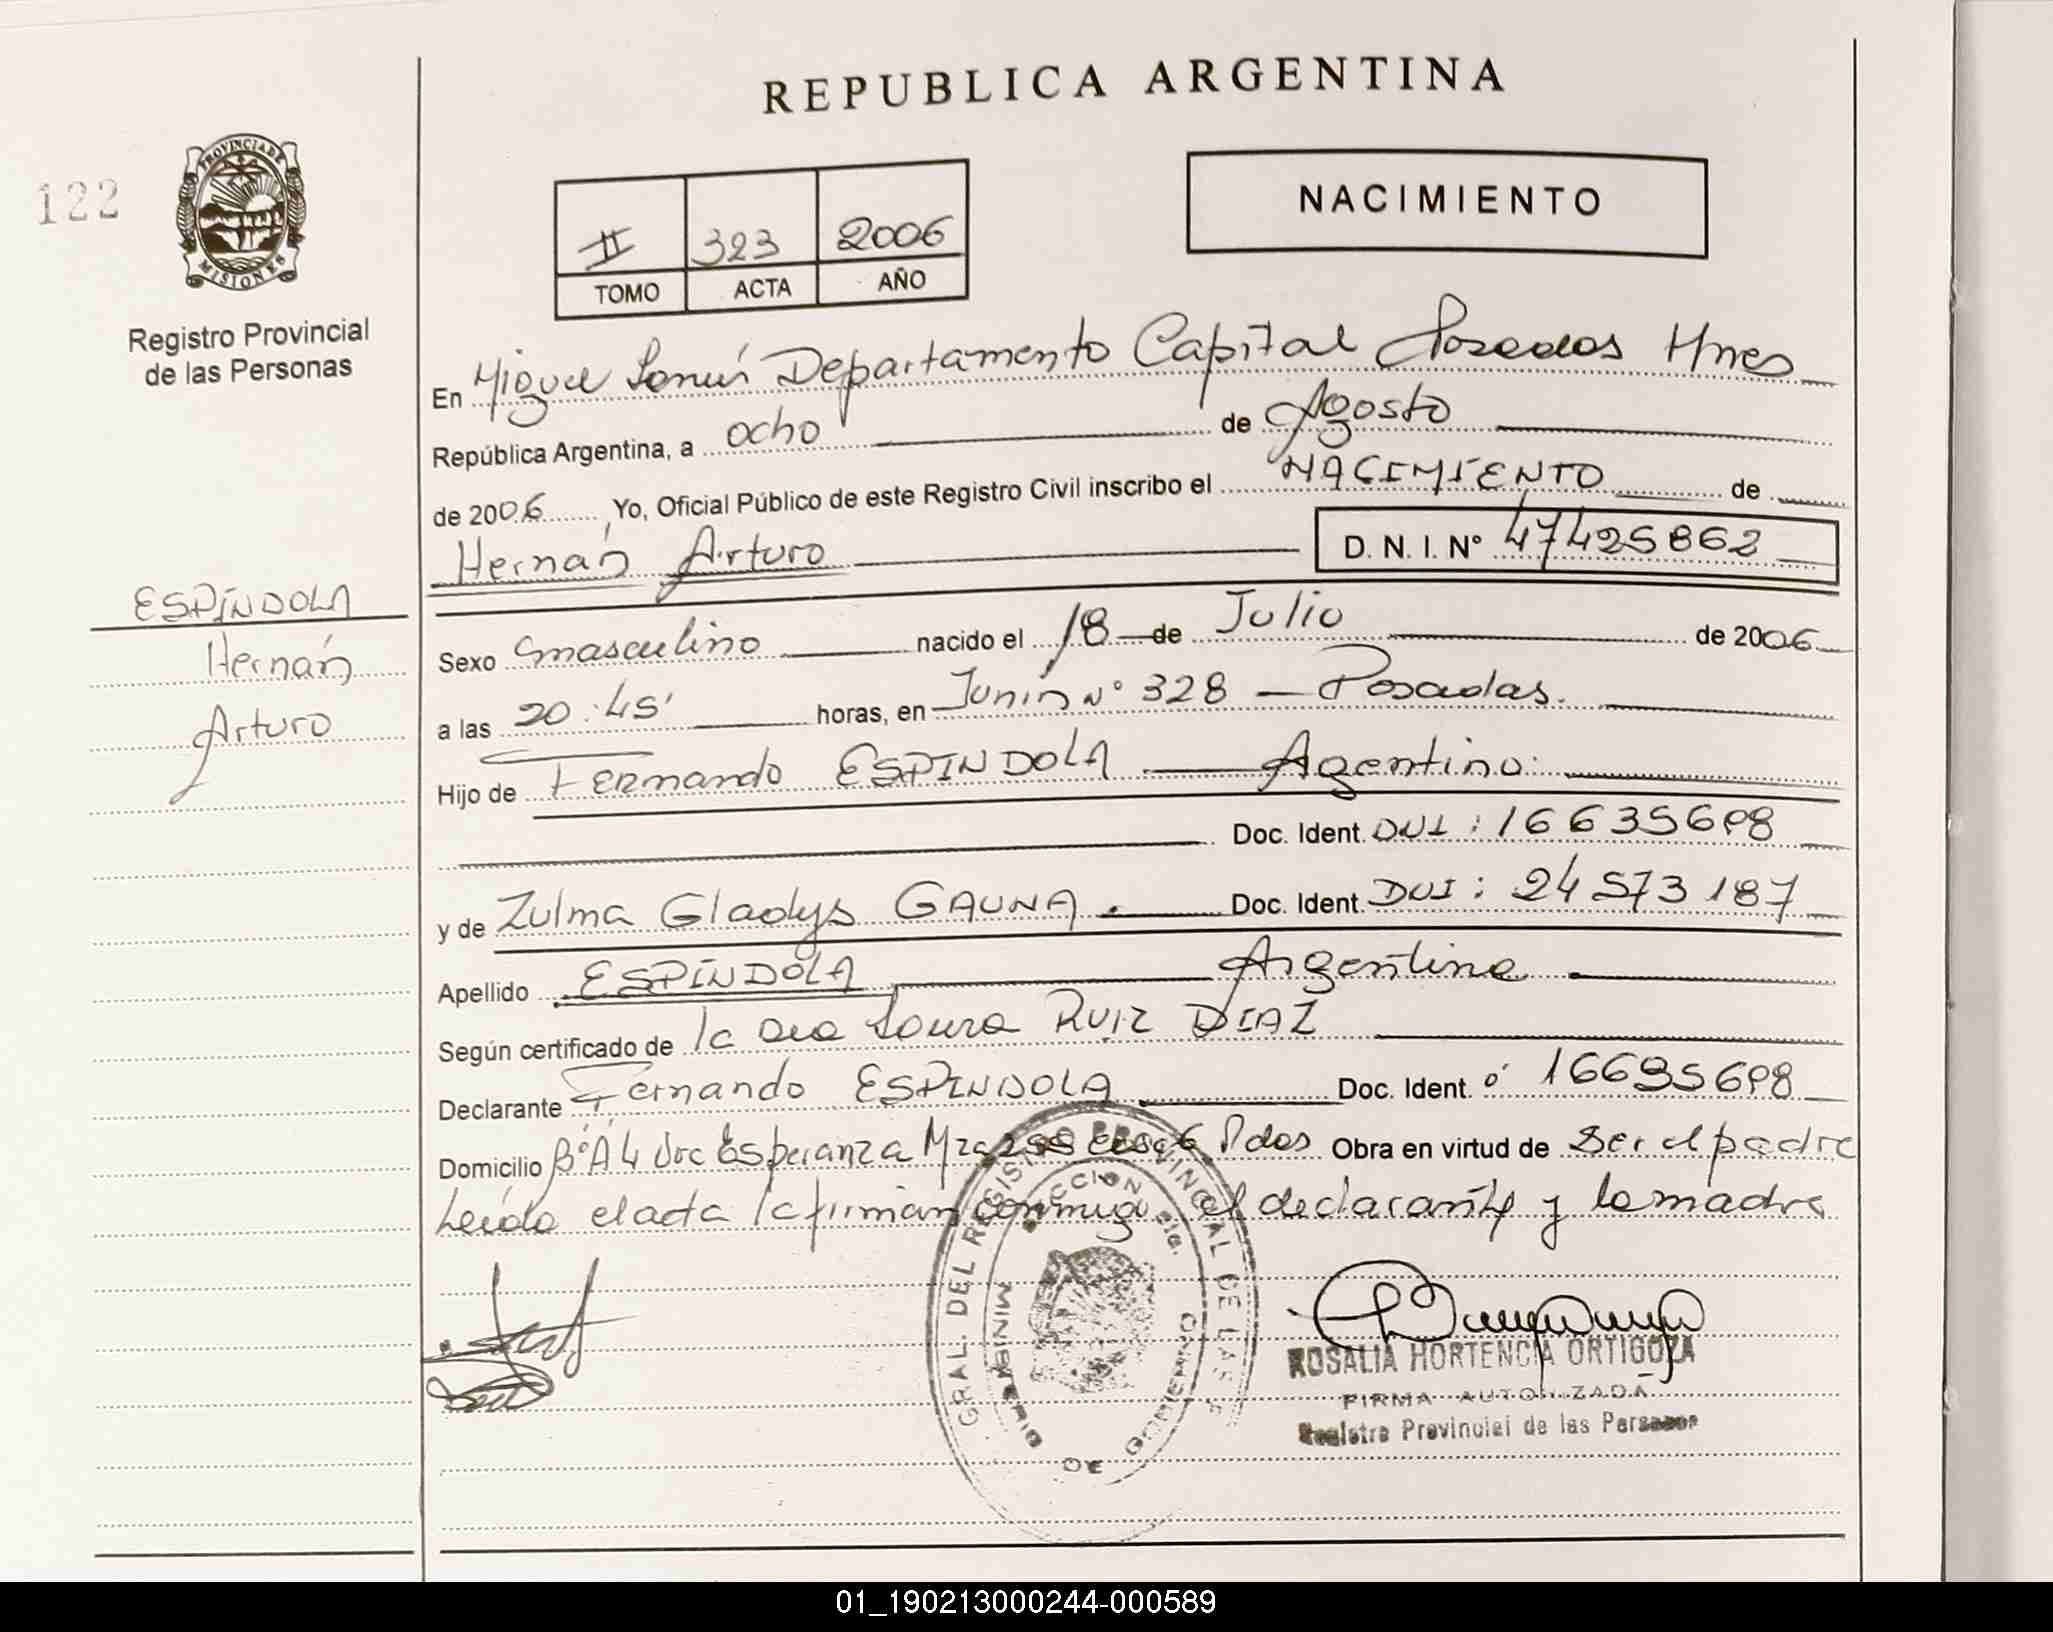 REPUBLICA ARGENTINA
122
PROVINCIA DE
MISIONES
Registro Provincial
de las Personas
II 323 2006
TOMO ACTA AÑO
NACIMIENTO
En Miguel Lanús Departamento Capital Posadas Mnes
República Argentina, a ocho de Agosto
de 2006 Yo, Oficial Público de este Registro Civil inscribo el NACIMIENTO de
Hernán Arturo D. N. I. Nº 47425862
ESPÍNDOLA
Hernán
Arturo
Sexo masculino nacido el 18 de Julio de 2006
a las 20:45' horas, en Junin Nº 328 - Posadas.
Hijo de Fernando ESPINDOLA Agentino
Doc. Ident. DNI: 16635698
y de Zulma Gladys GAUNA. Doc. Ident. DNI: 24573187
Apellido ESPÍNDOLA Argentina
Según certificado de la Dra Laura RUIZ DIAZ
Declarante Fernando ESPINDOLA Doc. Ident. 16635698
Domicilio BºA4 Esperanza Mza 6 Pdas Obra en virtud de ser el padre
Leída el acta la firman conmigo el declarante y la madre
GRAL. DEL REGISTRO PROVINCIAL DE LAS
DIRECCION
MINISTERIO DE GOBIERNO
ROSALIA HORTENCIA ORTIGOZA
FIRMA AUTORIZADA
Registro Provincial de las Personas
01_190213000244-000589